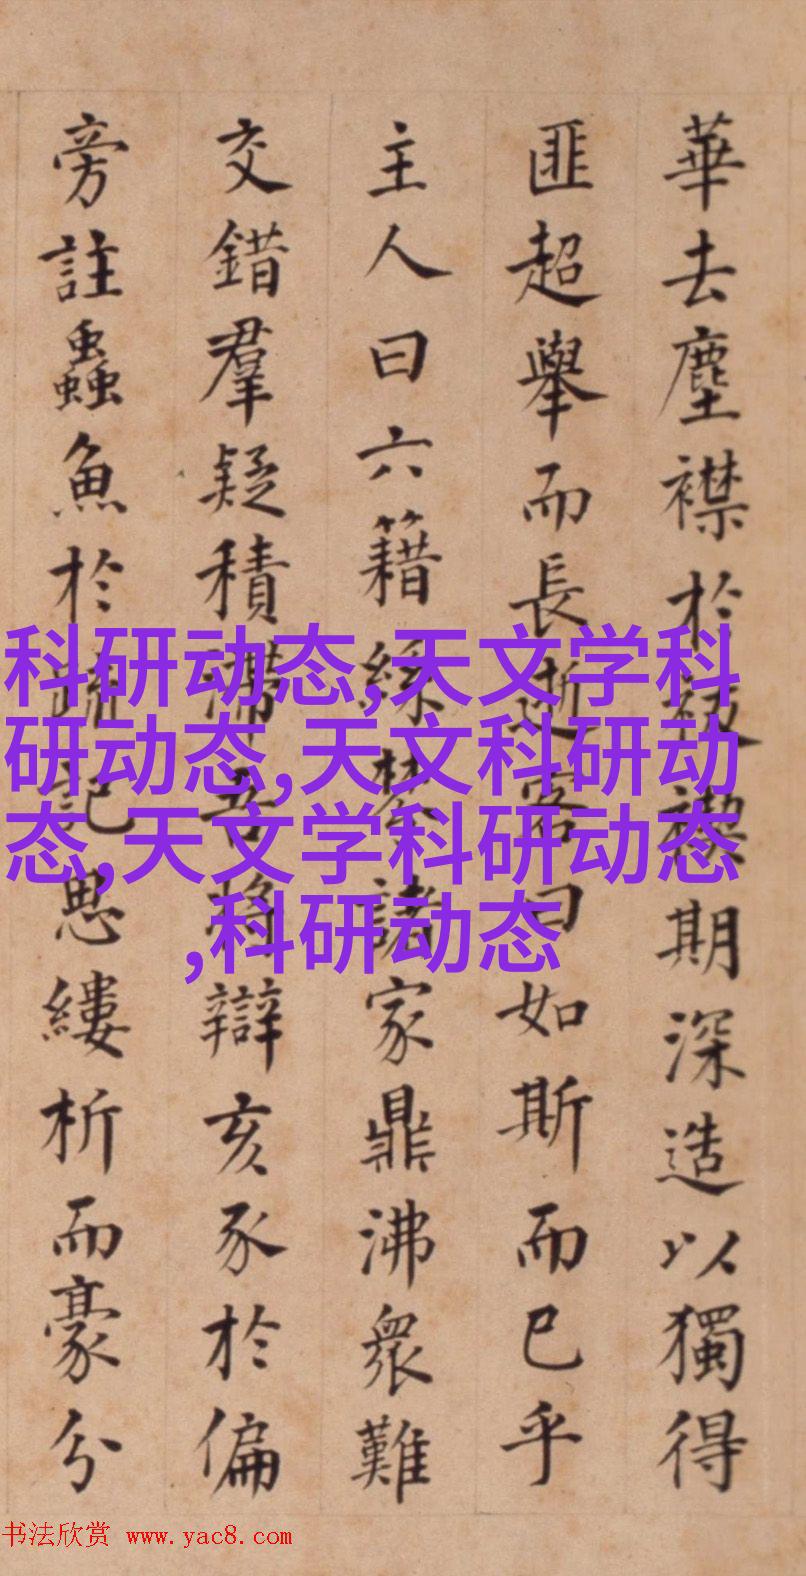 華去塵襟於祓禊期深造以獨得
匪超舉而長逝客曰如斯而已乎
主人曰六籍絲棼諸家鼎沸衆難
交錯羣疑積滯吾將辯亥豕於偏
旁註蟲魚於疏記思縷析而豪分
科研动态,天文学科
研动态,天文科研动
态,天文学科研动态
,科研动态
书法欣赏 www.yac8.com